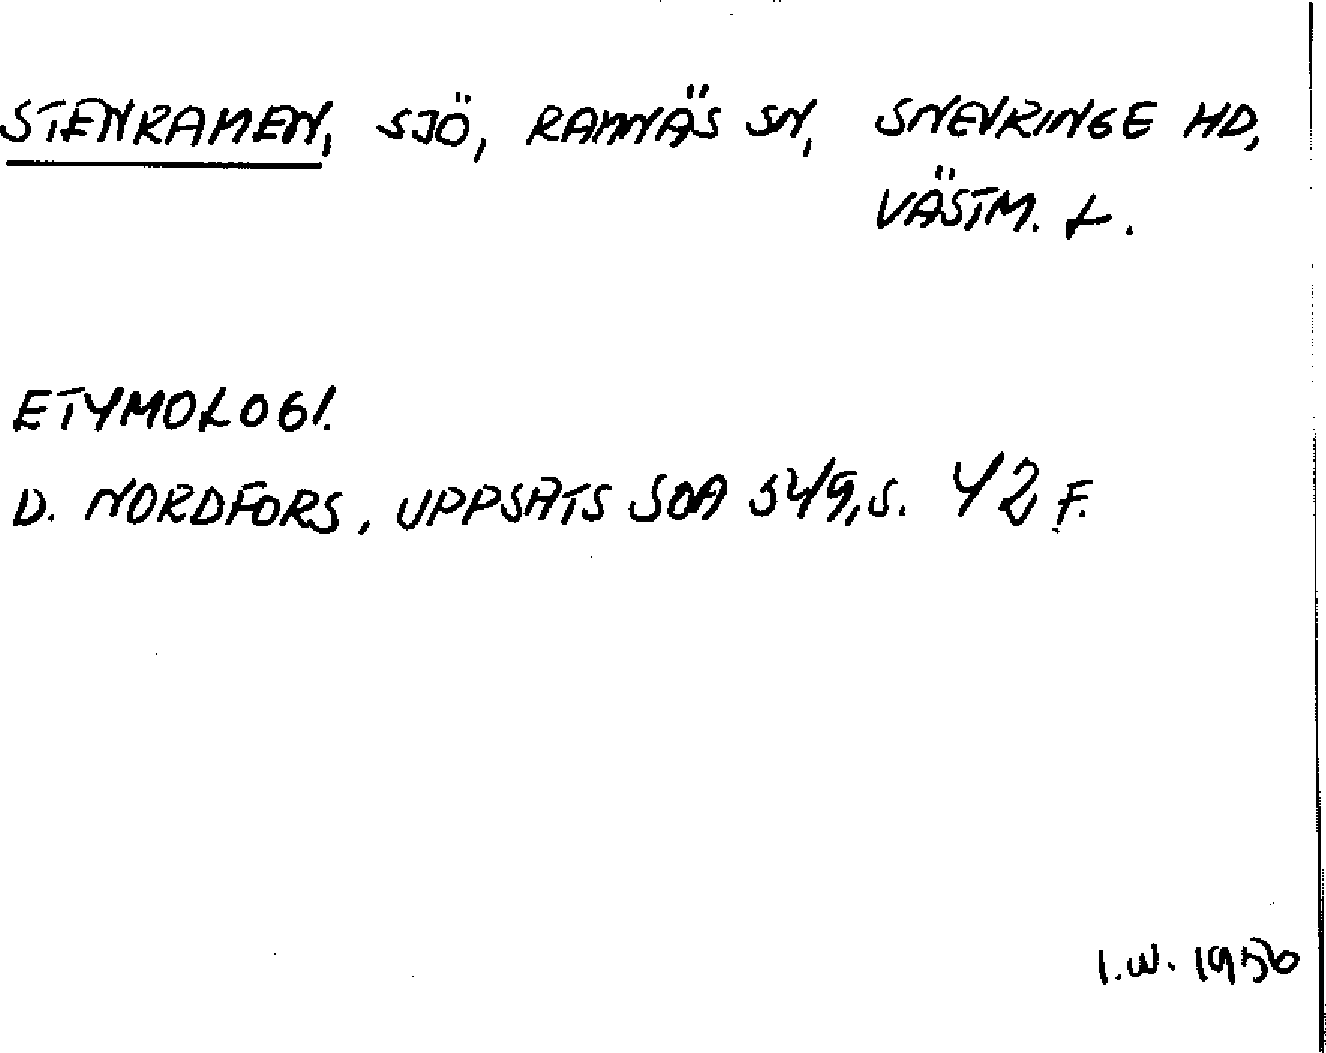 STENRAMEN, SJÖ, RAMNÄS SN, SNEVRINGE HD,
VÄSTM. L.
ETYMOLOGI.
D. NORDFORS, UPPSATS SOA 549, S. 42 F.
I.W. 1956